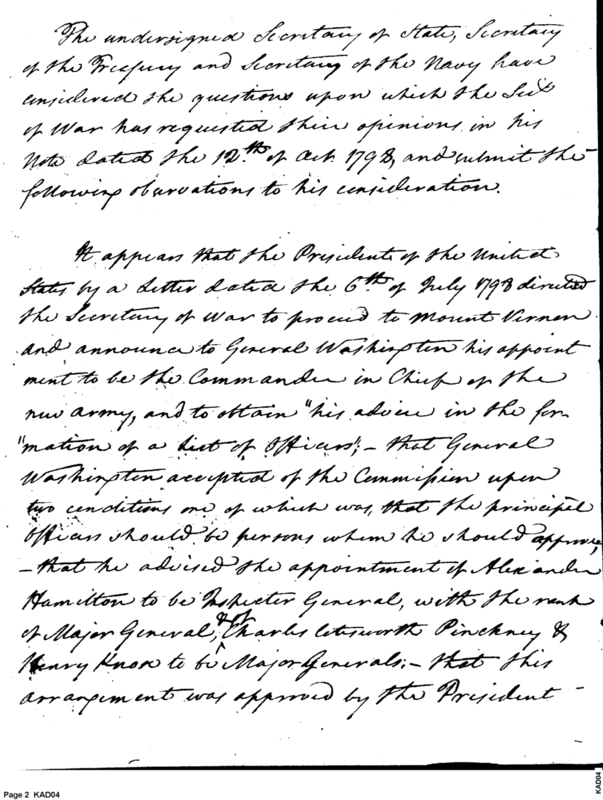 The undersigned Secretary of State, Secretary
of the Treasury and Secretary of the Navy have
considered the questions upon which the Secy
of War has requested their opinions in his
Note dated the 12th of Oct. 1798, and submit the
following observations to his consideration.
It appears that the President of the United
States by a letter dated the 6th of July 1798 directed
the Secretary of War to proceed to Mount Vernon
and announce to General Washington his appoint
ment to be the Commander in Chief of the
new army, and to obtain "his advice in the for-
"mation of a list of Officers"; - that General
Washington accepted of the Commission upon
two conditions one of which was, that the principal
Officers should be persons whom he should approve,
- that he advised the appointment of Alexander
Hamilton to be Inspector General, with the rank
of Major General, & of Charles Cotesworth Pinckney &
Henry Knox to be Major Generals; - that this
arrangement was approved by the President -
Page 2 KAD04
KAD04